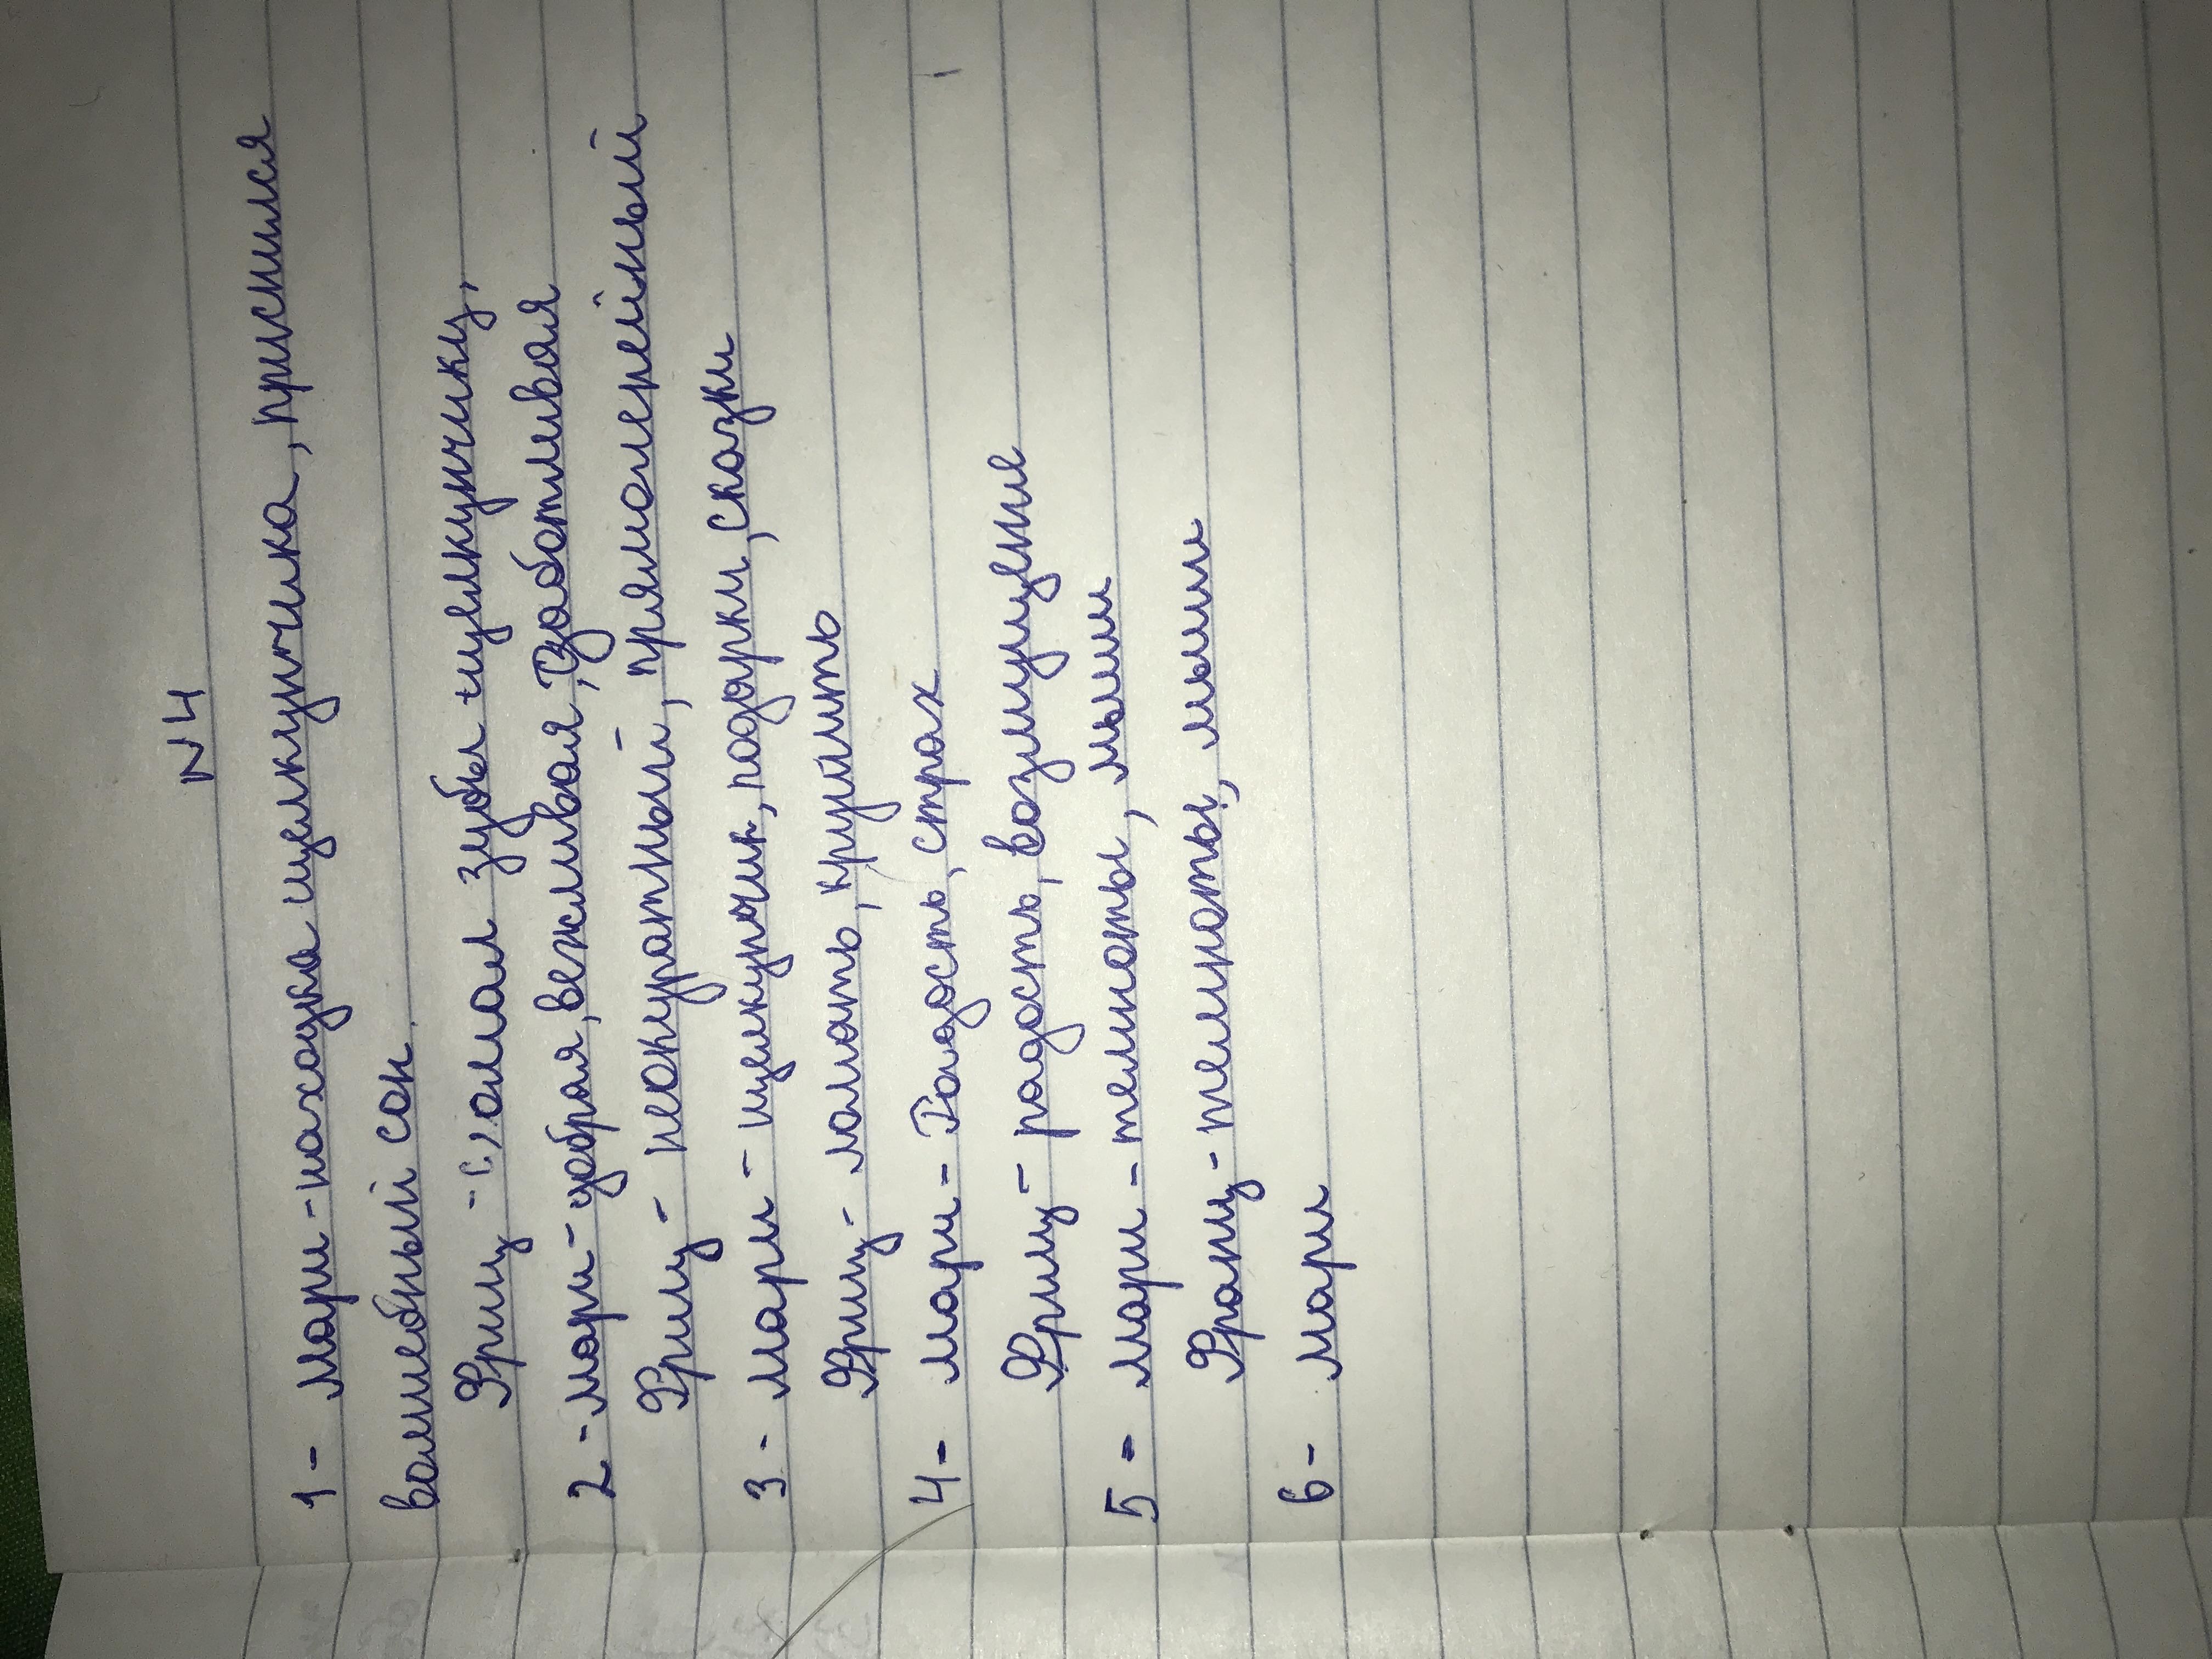 N4
1 - Мари - находка щелкунчика, приснился
волшебный сон.
Фриц - сломал зубы щелкунчику,
2 - Мари - добрая, вежливая, Заботливая
Фриц - неокуратный, прямолерейный
3 - Мари - щелкунчик, подарки, сказки
Фриц - ломать, крушить
4 - Мари - Радость, страх
Фриц - радость, возмущение
5 - Мари - темноты, мыши
Франц - темноты, мыши
6 - Мари